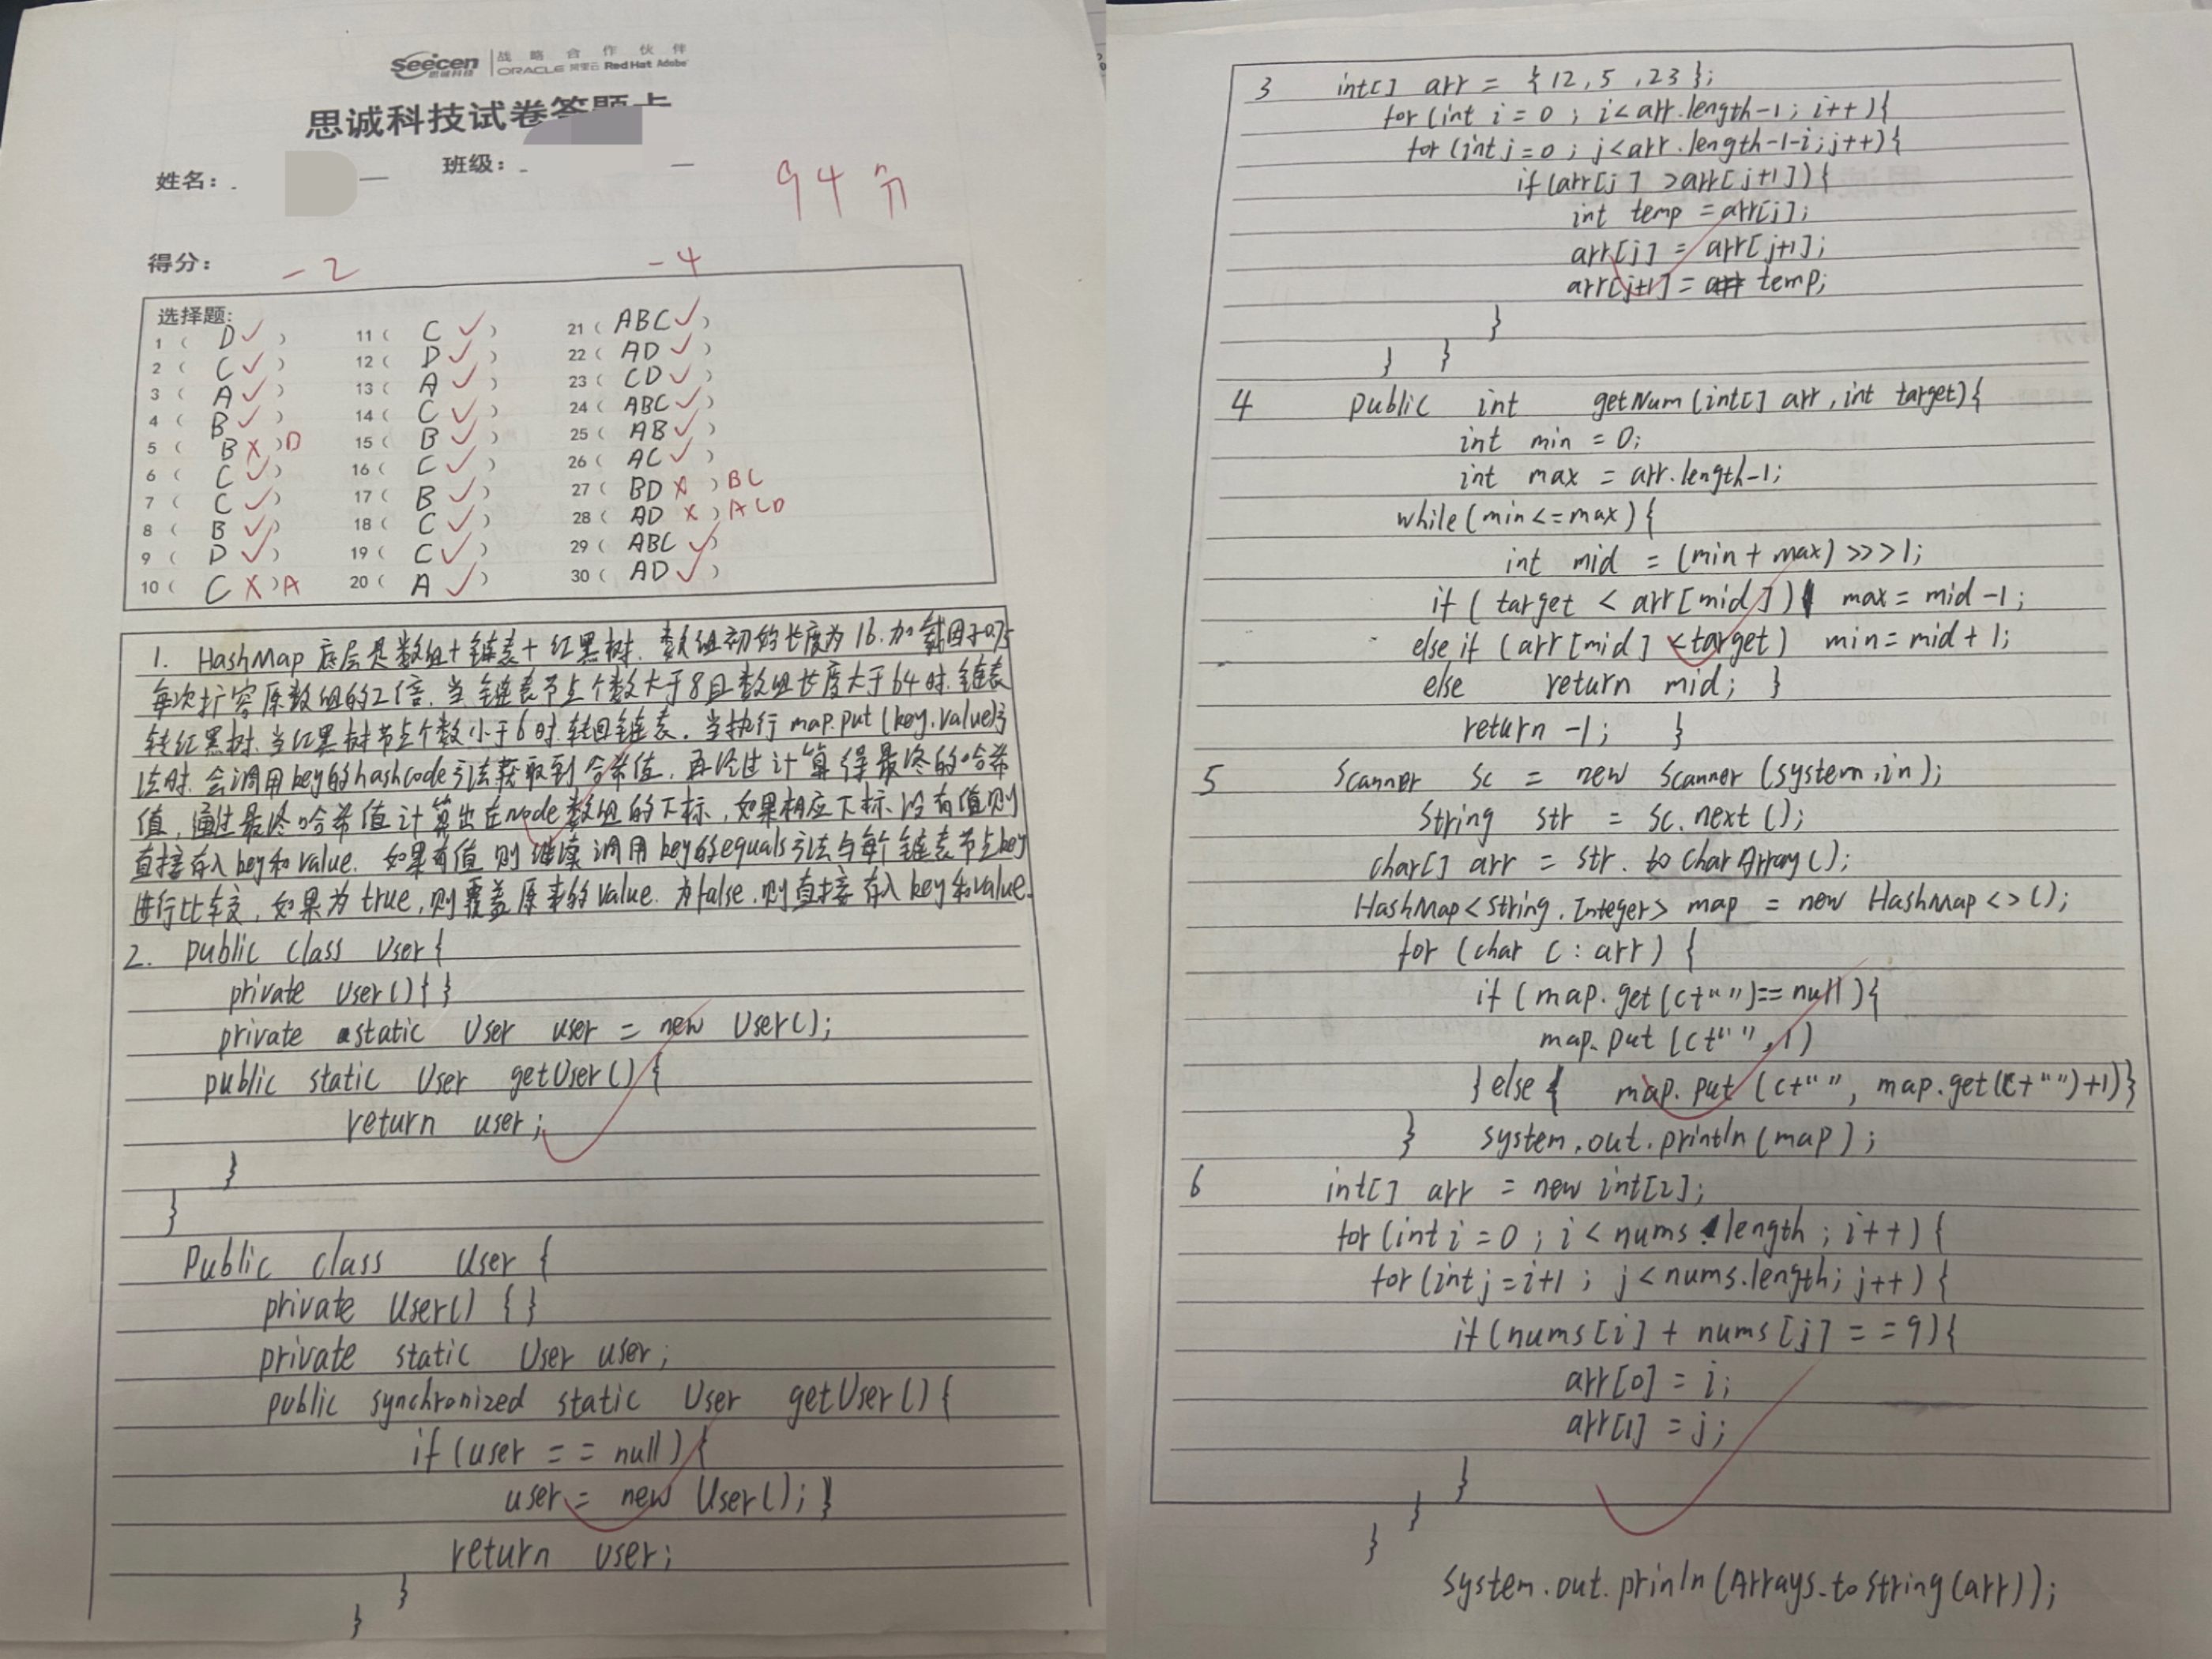 Seecen 思诚科技
战略合作伙伴
ORACLE 阿里云 Red Hat Adobe
思诚科技试卷答题卡
姓名：
班级：
94分
得分：
-2
-4
选择题:
1 ( D ✓ )
2 ( C ✓ )
3 ( A ✓ )
4 ( B ✓ )
5 ( B X ) D
6 ( C ✓ )
7 ( C ✓ )
8 ( B ✓ )
9 ( D ✓ )
10 ( C X ) A
11 ( C ✓ )
12 ( D ✓ )
13 ( A ✓ )
14 ( C ✓ )
15 ( B ✓ )
16 ( C ✓ )
17 ( B ✓ )
18 ( C ✓ )
19 ( C ✓ )
20 ( A ✓ )
21 ( ABC ✓ )
22 ( AD ✓ )
23 ( CD ✓ )
24 ( ABC ✓ )
25 ( AB ✓ )
26 ( AC ✓ )
27 ( BD X ) BC
28 ( AD X ) ACD
29 ( ABC ✓ )
30 ( AD ✓ )
1. HashMap 底层是数组+链表+红黑树. 数组初始长度为16.加载因子0.75
每次扩容原数组的2倍.当链表节点个数大于8且数组长度大于64时.链表
转红黑树.当红黑树节点个数小于6时.转回链表. 当执行 map.put(key.value)方
法时.会调用key的hashcode方法获取到哈希值，再经过计算得最终的哈希
值，通过最终哈希值计算出在node数组的下标，如果相应下标没有值则
直接存入key和value. 如果有值则继续调用key的equals方法与每个链表节点key
进行比较，如果为true,则覆盖原来的value.为false.则直接存入key和value.
2. public class User{
private User(){}
private static User user = new User();
public static User getUser(){
return user;
}
}
Public class User {
private User() {}
private static User user;
public synchronized static User getUser(){
if(user == null){
user = new User();}
return user;
}
}
3 int[] arr = {12,5,23};
for(int i = 0; i<arr.length-1; i++){
for(int j=0; j<arr.length-1-i;j++){
if(arr[j] >arr[j+1]){
int temp = arr[j];
arr[j] = arr[j+1];
arr[j+1] = temp;
}
} }
4 public int getNum(int[] arr,int target){
int min = 0;
int max = arr.length-1;
while(min<=max){
int mid = (min+max)>>>1;
if( target < arr[mid]) max = mid-1;
else if (arr[mid] <target) min=mid+1;
else return mid; }
return -1; }
5 Scanner sc = new Scanner(system.in);
String str = sc.next();
char[] arr = str.toCharArray();
HashMap<String,Integer> map = new HashMap<>();
for (char c : arr) {
if(map.get(c+"")==null){
map.put(c+"",1)
}else{ map.put(c+"", map.get(c+"")+1)}
} system.out.println(map);
6 int[] arr = new int[2];
for(int i=0; i<nums.length; i++){
for(int j=i+1; j<nums.length; j++){
if(nums[i]+nums[j]==9){
arr[0] = i;
arr[1] = j;
}
}
}
system.out.prinln(Arrays.toString(arr));